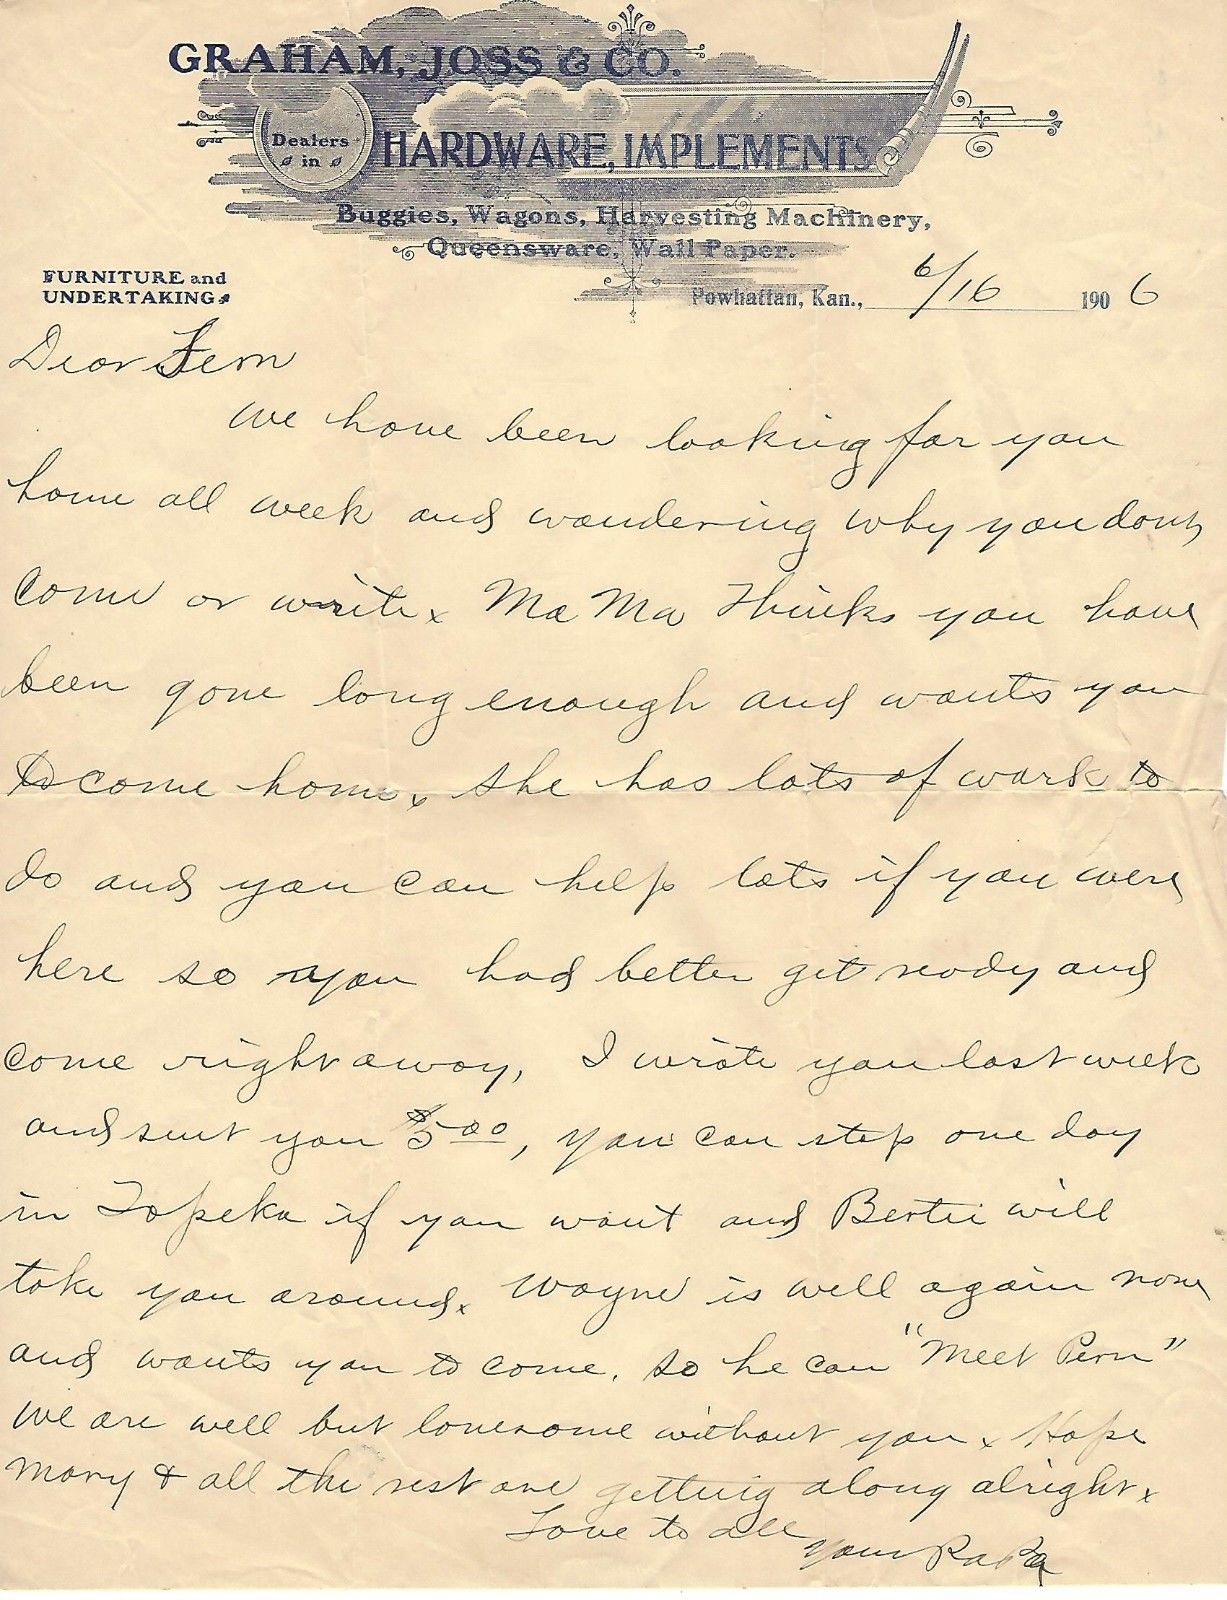 GRAHAM, JOSS & CO.
Dealers in
HARDWARE, IMPLEMENTS
Buggies, Wagons, Harvesting Machinery,
Queensware, Wall Paper.
FURNITURE and
UNDERTAKING
Powhattan, Kan., 6/16 1906
Dear Fern
We have been looking for you
home all week and wondering why you dont
come or write x Ma Ma Thinks you have
been gone long enough and wants you
to come home x she has lots of work to
do and you can help lots if you were
here so you had better get ready and
come right away, I wrote you last week
and sent you $5.00, you can stop one day
in Topeka if you want and Bertie will
take you around x Wayne is well again now
and wants you to come. so he can "Meet Pern"
We are well but lonesome without you x Hope
Mary & all the rest are getting along alright x
Love to all
Your PaPa